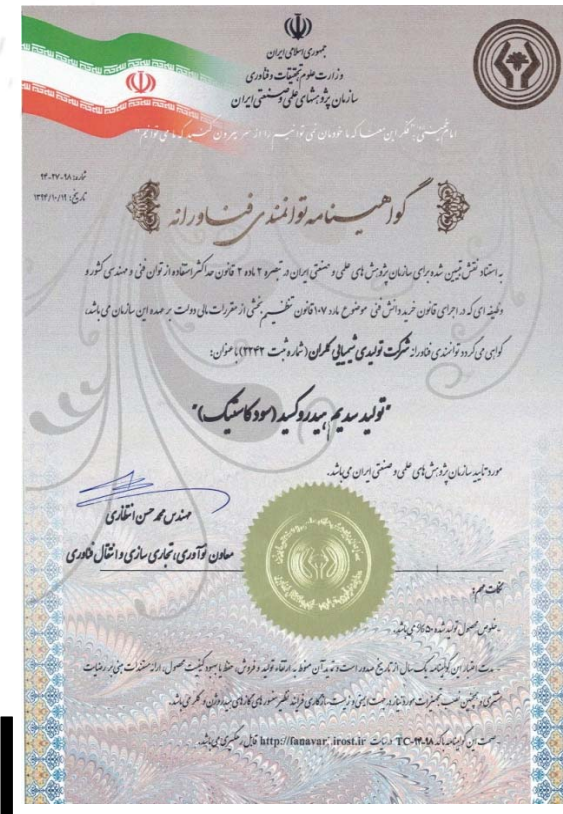 جمهوری اسلامی ایران
وزارت علوم تحقیقات و فناوری
سازمان پژوهشهای علمی و صنعتی ایران
امام خمینی: فکر این مسئله که ما خودمان نمی توانیم را از سر بیرون کنید که ما می توانیم"
شماره: ۹۴-۲۷-۹۸
تاریخ: ۱۳۹۴/۱۰/۱۹
گواهینامه توانمندی فناورانه
به استناد نقش تبیین شده برای سازمان پژوهش های علمی و صنعتی ایران در تبصره ۲ ماده ۲ قانون حداکثر استفاده از توان فنی و مهندسی کشور و
وظیفه ای که در اجرای قانون خرید دانش فنی موضوع ماده ۱۰۷ قانون تنظیم بخشی از مقررات مالی دولت بر عهده این سازمان می باشد،
گواهی می گردد توانمندی فناورانه شرکت تولیدی شیمیایی کلران (شماره ثبت ۲۲۴۲) با عنوان:
"تولید سدیم هیدروکسید (سود کاستیک)"
مورد تأیید سازمان پژوهش های علمی و صنعتی ایران می باشد.
مهندس محمد حسن انتظاری
معاون نوآوری، تجاری سازی و انتقال فناوری
نکات مهم:
- خلوص محصول تولید شده ۵۰٪ می باشد.
- مدت اعتبار این گواهینامه یک سال از تاریخ صدور است و تمدید آن منوط به ارتقاء تولید و فروش، حفظ یا بهبود کیفیت محصول، ارائه مستندات مبنی بر رضایت
مشتری و همچنین نصب تجهیزات مورد نیاز در جهت ایمنی و زیست سازگاری فرآیند نظیر سنسور های گازهای هیدروژن و کلر می باشد.
- صحت این گواهینامه با کد TC-۹۴-۹۸ در سایت http://fanavari.irost.ir قابل رهگیری می باشد.